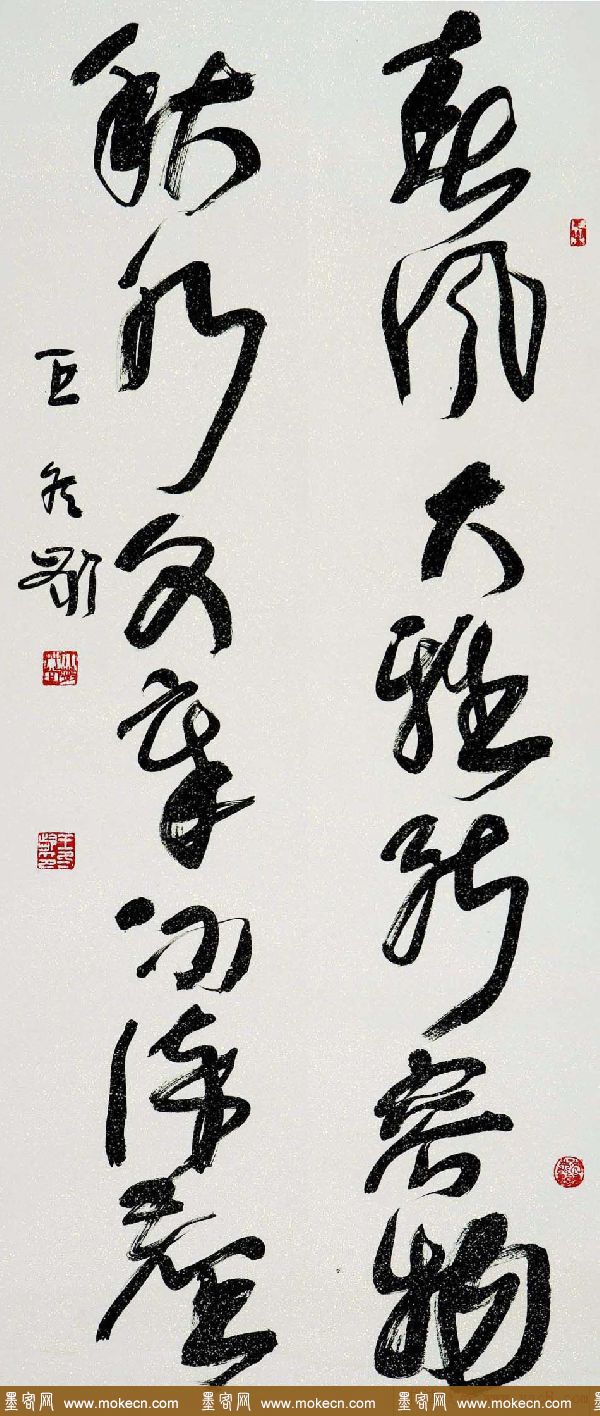 春風大雅能容物
秋水文章不染塵
王冬齡
墨客网 www.mokecn.com 墨客网 www.mokecn.com 墨客网 www.mokecn.com